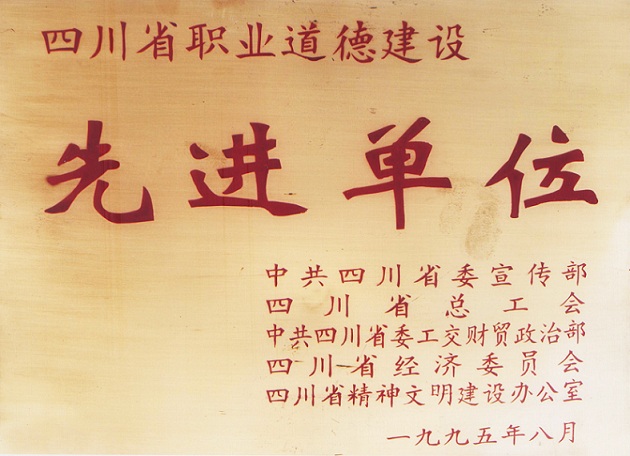 四川省职业道德建设
先进单位
中共四川省委宣传部
四川省总工会
中共四川省委工交财贸政治部
四川省经济委员会
四川省精神文明建设办公室
一九九五年八月